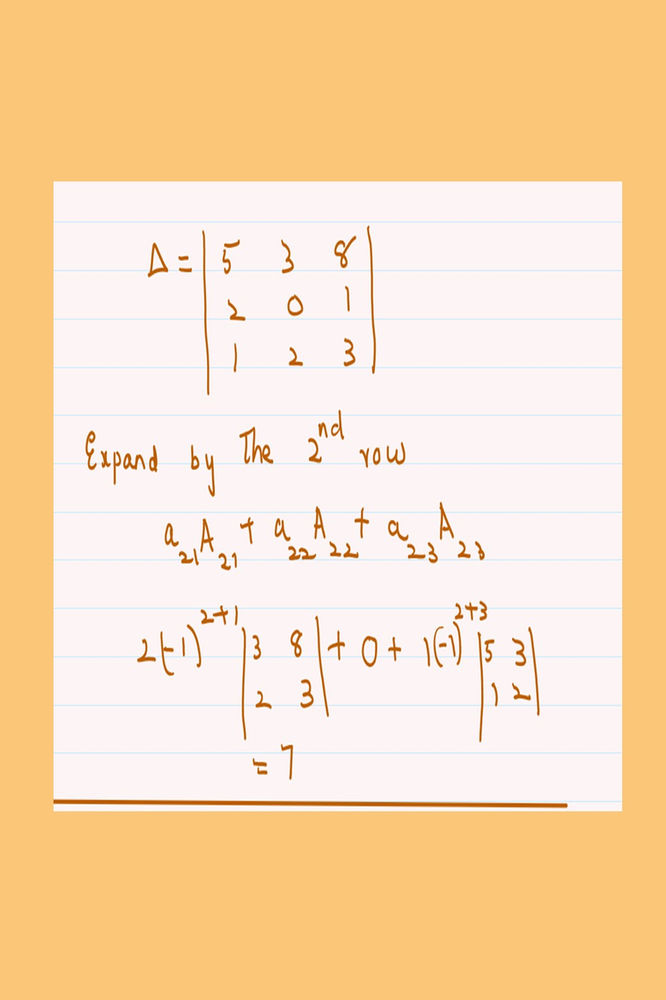 Δ = | 5 3 8 |
| 2 0 1 |
| 1 2 3 |
Expand by The 2nd row
a21A21 + a22A22 + a23A23
2(-1)^2+1 |3 8| + 0 + 1(-1)^2+3 |5 3|
|2 3| |1 2|
= 7